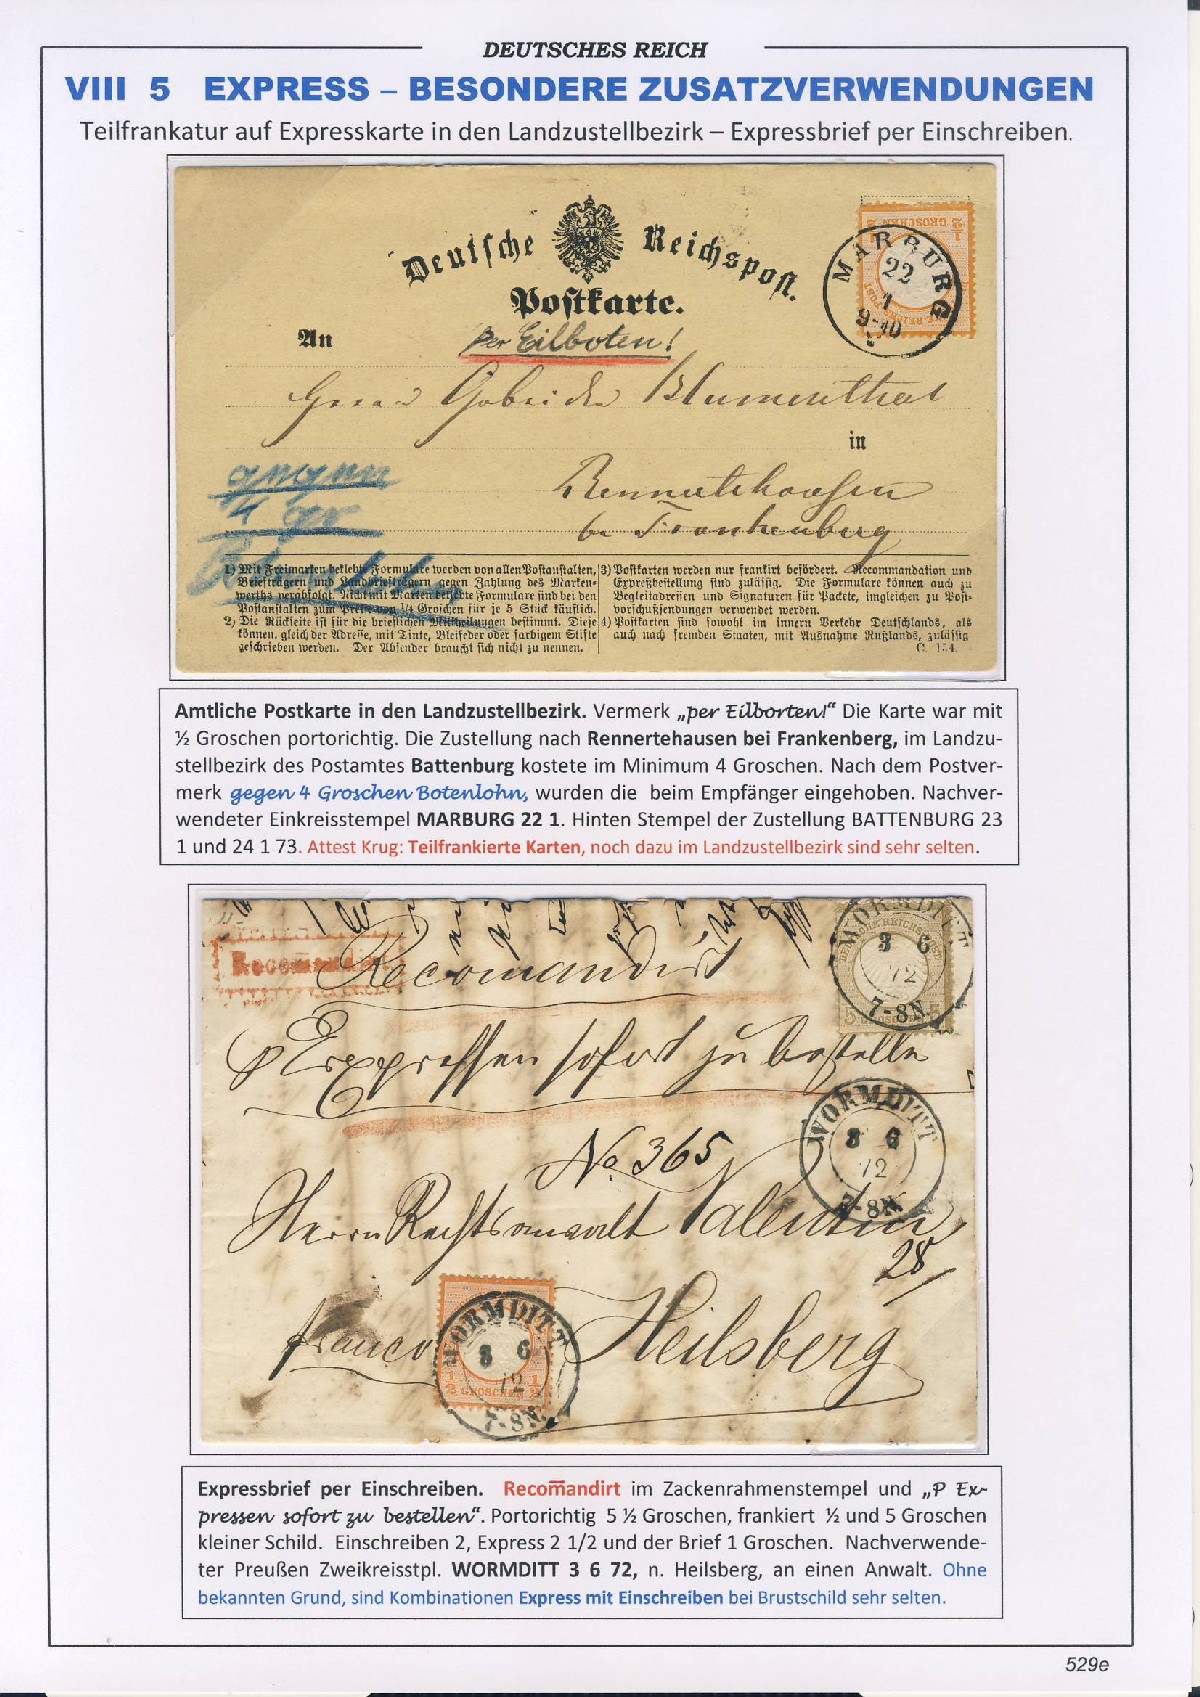 DEUTSCHES REICH
VIII 5 EXPRESS – BESONDERE ZUSATZVERWENDUNGEN
Teilfrankatur auf Expresskarte in den Landzustellbezirk – Expressbrief per Einschreiben.
Deutsche Reichspost.
Postkarte.
½ GROSCHEN
MARBURG
22
1
9-10
An
per Eilboten!
Herrn Gebrüder Blumenthal
in
Rennertehausen
bei Frankenberg
gegen
4 gr
Botenlohn
1) Mit Freimarken beklebte Formulare werden von allen Postanstalten,
Briefträgern und Landbriefträgern gegen Zahlung des Marken-
werths verabfolgt. Nicht mit Marken beklebte Formulare sind bei den
Postanstalten zum Preise von ¼ Groschen für je 5 Stück käuflich.
2) Die Rückseite ist für die brieflichen Mittheilungen bestimmt. Diese
können, gleich der Adresse, mit Tinte, Bleifeder oder farbigem Stifte
geschrieben werden. Der Absender braucht sich nicht zu nennen.
3) Postkarten werden nur frankirt befördert. Recommandation und
Expreßbestellung sind zulässig. Die Formulare können auch zu
Begleitadressen und Signaturen für Packete, imgleichen zu Post-
vorschußsendungen verwendet werden.
4) Postkarten sind sowohl im innern Verkehr Deutschlands, als
auch nach fremden Staaten, mit Ausnahme Rußlands, zulässig
C. 154.
Amtliche Postkarte in den Landzustellbezirk. Vermerk „per Eilborten!“ Die Karte war mit
½ Groschen portorichtig. Die Zustellung nach Rennertehausen bei Frankenberg, im Landzu-
stellbezirk des Postamtes Battenburg kostete im Minimum 4 Groschen. Nach dem Postver-
merk gegen 4 Groschen Botenlohn, wurden die beim Empfänger eingehoben. Nachver-
wendeter Einkreisstempel MARBURG 22 1. Hinten Stempel der Zustellung BATTENBURG 23
1 und 24 1 73. Attest Krug: Teilfrankierte Karten, noch dazu im Landzustellbezirk sind sehr selten.
Recom̅andirt
Recomandirt
WORMDITT
3 6
72
7-8N.
5 GROSCHEN 5
P Expressen sofort zu bestellen
WORMDITT
3 6
72
7-8N.
No. 365
Herrn Rechtsanwalt Valentin
28/
franco Heilsberg
WORMDITT
3 6
72
7-8N.
½ GROSCHEN ½
Expressbrief per Einschreiben. Recom̅andirt im Zackenrahmenstempel und „P Ex-
pressen sofort zu bestellen“. Portorichtig 5 ½ Groschen, frankiert ½ und 5 Groschen
kleiner Schild. Einschreiben 2, Express 2 1/2 und der Brief 1 Groschen. Nachverwende-
ter Preußen Zweikreisstpl. WORMDITT 3 6 72, n. Heilsberg, an einen Anwalt. Ohne
bekannten Grund, sind Kombinationen Express mit Einschreiben bei Brustschild sehr selten.
529e